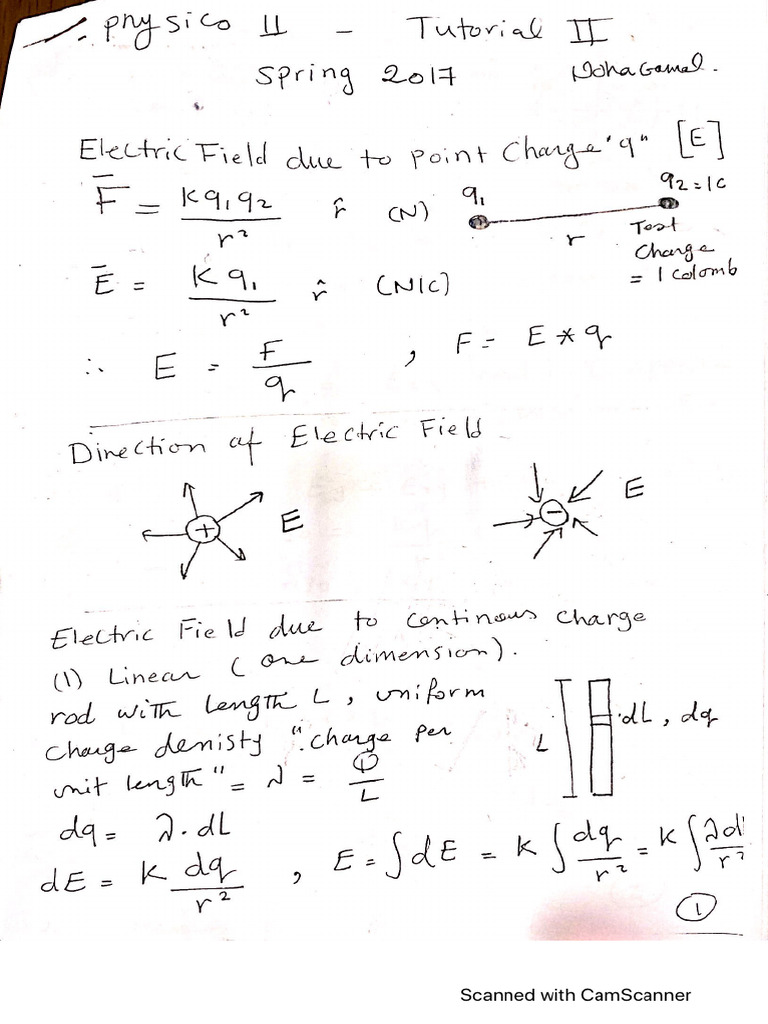 Physics II - Tutorial II
Spring 2017 Noha Gamal.
Electric Field due to point Charge "q" [E]
F̄ = Kq₁q₂ / r² r̂ (N)
q₁ r q₂=1C
Test
Charge
= 1 Colomb
Ē = Kq₁ / r² r̂ (N/C)
∴ E = F / q , F = E * q
Direction of Electric Field
+ E - E
Electric Field due to continous charge
(1) Linear (one dimension).
rod with length L, uniform
charge denisty "charge per
unit length" = λ = Q / L
L dL, dq
dq = λ.dL
dE = K dq / r² , E = ∫dE = K ∫ dq / r² = K ∫ λd / r²
1
Scanned with CamScanner